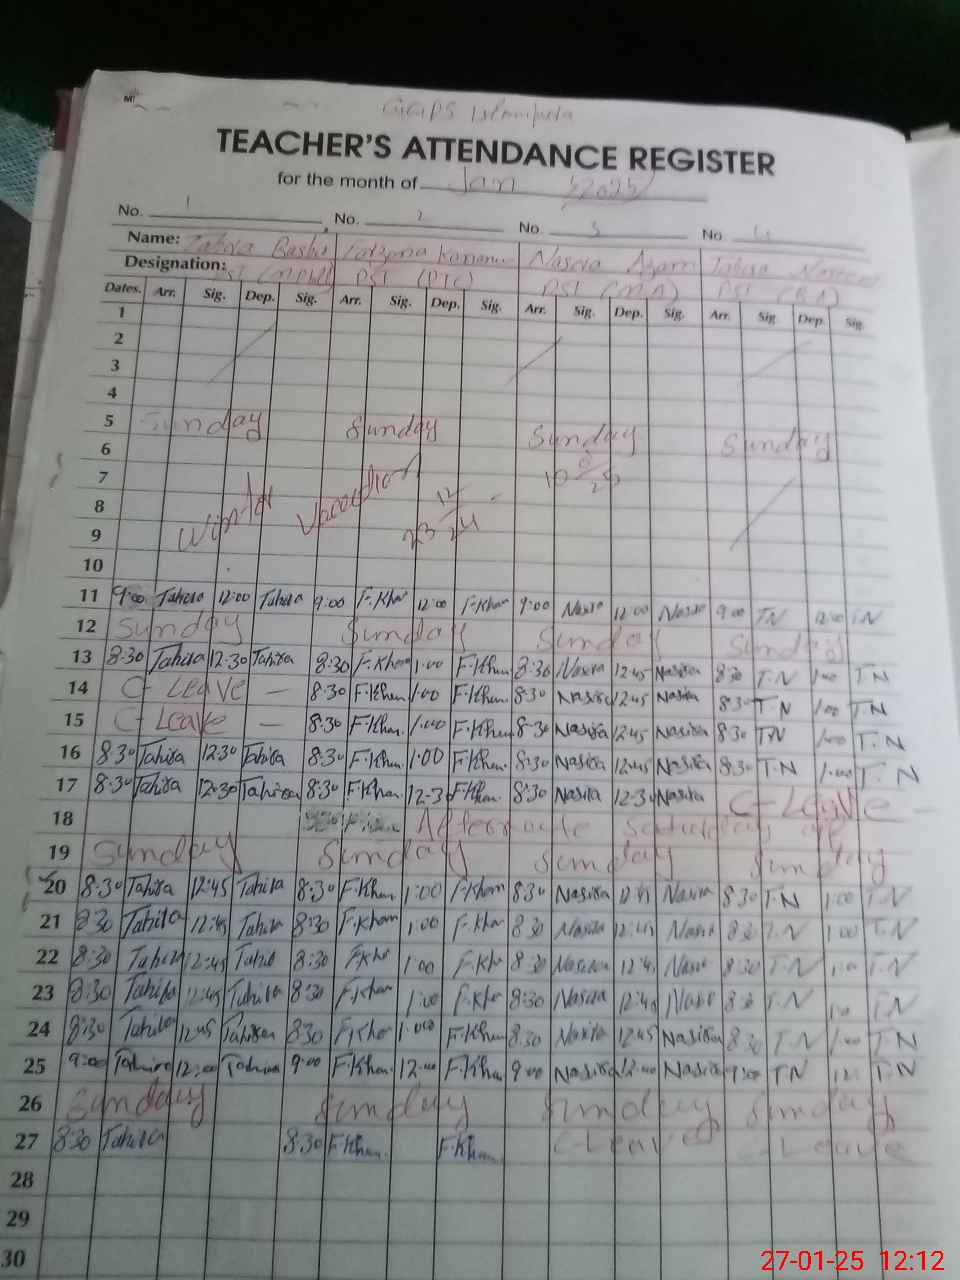 GGPS
TEACHER'S ATTENDANCE REGISTER
for the month of Jan 2025
No. 1 No. 2 No. 3 No
Name: Tahira Nasira Azam Tahira
Designation: PST PST (PTC) PST (M.A) PST (B.A)
Dates. Arr. Sig. Dep. Sig. Arr. Sig. Dep. Sig. Arr. Sig. Dep. Sig. Arr. Sig. Dep. Sig.
1
2
3
4
5 Sunday Sunday Sunday Sunday
6
7
8 Winter Vacation 23 12/24 - 10 /25
9
10
11 9:00 Tahira 12:00 Tahira 9:00 F.Khan 12:00 F.Khan 9:00 Nasira 12:00 Nasira 9:00 TN 12:00 TN
12 Sunday Sunday Sunday Sunday
13 8:30 Tahira 12:30 Tahira 8:30 F.Khan 1:00 F.Khan 8:30 Nasira 12:45 Nasira 8:30 T.N 1:00 T.N
14 C-Leave — 8:30 F.Khan 1:00 F.Khan 8:30 Nasira 12:45 Nasira 8:30 T.N 1:00 T.N
15 C-Leave — 8:30 F.Khan 1:00 F.Khan 8:30 Nasira 12:45 Nasira 8:30 T.N 1:00 T.N
16 8:30 Tahira 12:30 Tahira 8:30 F.Khan 1:00 F.Khan 8:30 Nasira 12:45 Nasira 8:30 T.N 1:00 T.N
17 8:30 Tahira 12:30 Tahira 8:30 F.Khan 12:30 F.Khan 8:30 Nasira 12:30 Nasira C-Leave -
18 Alternate Saturday off
19 Sunday Sunday Sunday Sunday
20 8:30 Tahira 12:45 Tahira 8:30 F.Khan 1:00 F.Khan 8:30 Nasira 12:45 Nasira 8:30 T.N 1:00 T.N
21 8:30 Tahira 12:45 Tahira 8:30 F.Khan 1:00 F.Khan 8:30 Nasira 12:45 Nasira 8:30 T.N 1:00 T.N
22 8:30 Tahira 12:45 Tahira 8:30 F.Khan 1:00 F.Khan 8:30 Nasira 12:45 Nasira 8:30 T.N 1:00 T.N
23 8:30 Tahira 12:45 Tahira 8:30 F.Khan 1:00 F.Khan 8:30 Nasira 12:45 Nasira 8:30 T.N 1:00 T.N
24 8:30 Tahira 12:45 Tahira 8:30 F.Khan 1:00 F.Khan 8:30 Nasira 12:45 Nasira 8:30 T.N 1:00 T.N
25 9:00 Tahira 12:00 Tahira 9:00 F.Khan 12:00 F.Khan 9:00 Nasira 12:00 Nasira 9:00 T.N T.N
26 Sunday Sunday Sunday Sunday
27 8:30 Tahira 8:30 F.Khan F.Khan C-Leave C-Leave
28
29
30
27-01-25 12:12